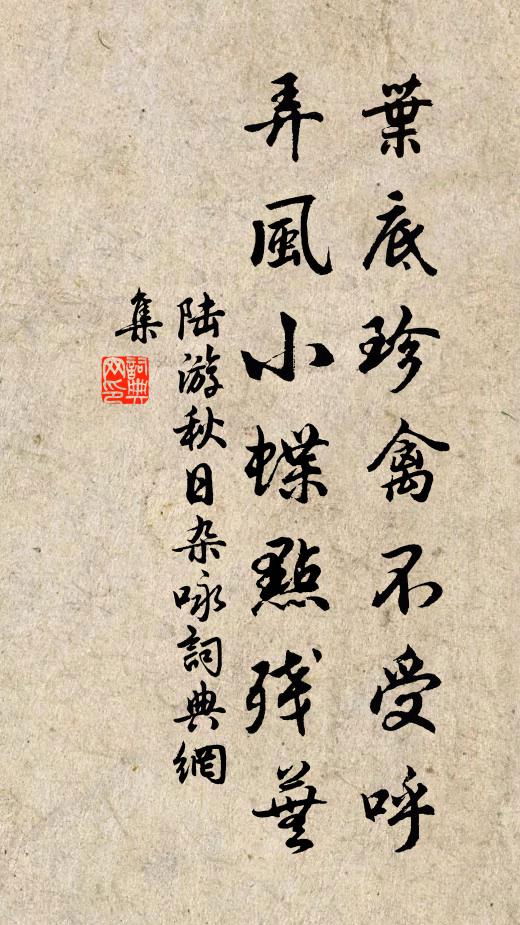 葉底珍禽不受呼
弄風小蝶點残蕪
陆游秋日杂咏詞典網
集
詞典
网印